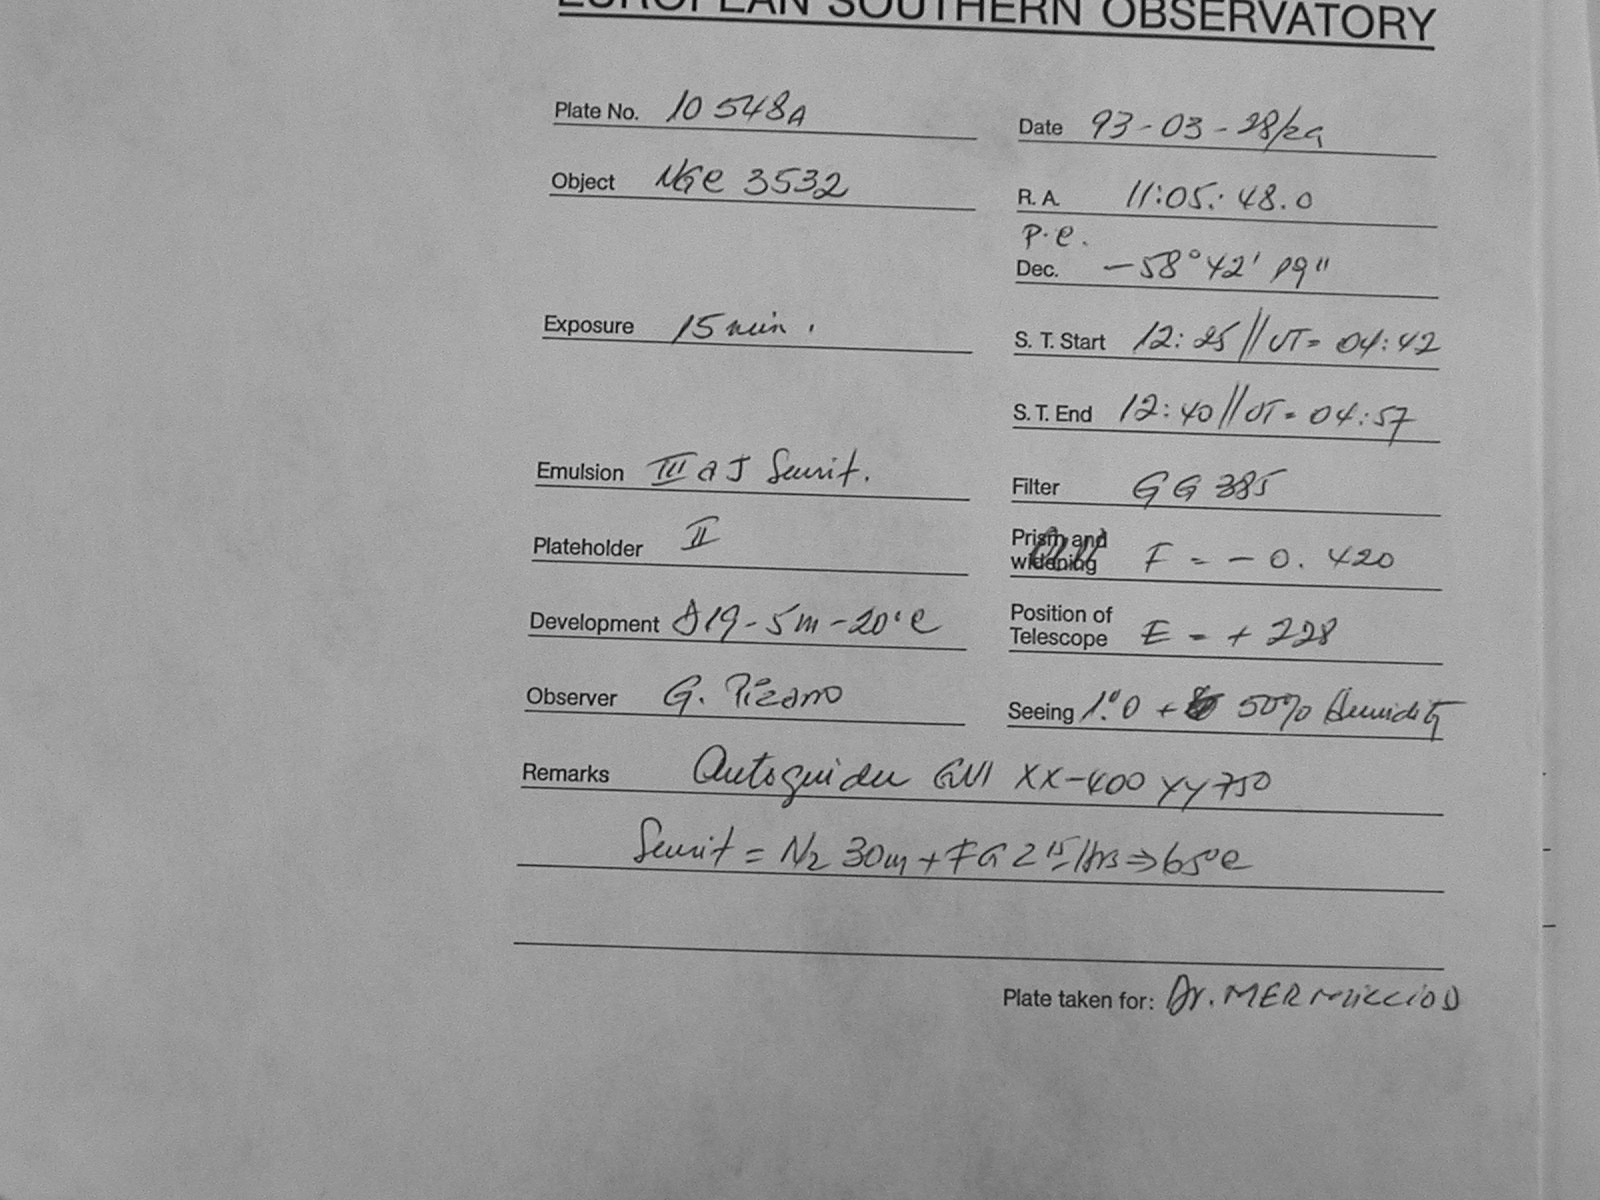 EUROPEAN SOUTHERN OBSERVATORY
Plate No. 10548A
Date 93-03-28/29
Object NGC 3532
R. A. 11:05:48.0
P.e.
Dec. -58°42' 19"
Exposure 15 min.
S. T. Start 12:25//UT= 04:42
S. T. End 12:40//UT= 04:57
Emulsion III a J Sensit.
Filter GG 385
Plateholder II
Prism and widening F = -0.420
Development D19-5m-20°C
Position of Telescope E = +228
Observer G. Pizarro
Seeing 1."0 + 50% Humidity
Remarks Autoguider GNI XX-400 YY 750
Sensit = N2 30m + FG 2 15 Hrs ⇒ 65°C
Plate taken for: Dr. MERMILLIOD